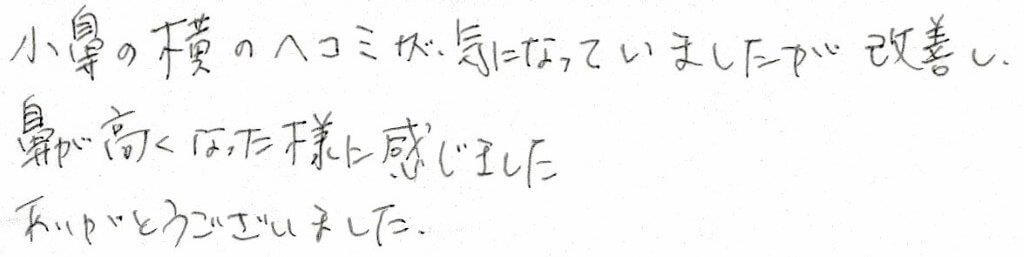 小鼻の横のヘコミが、気になっていましたが改善し、
鼻が高くなった様に感じました
ありがとうございました.